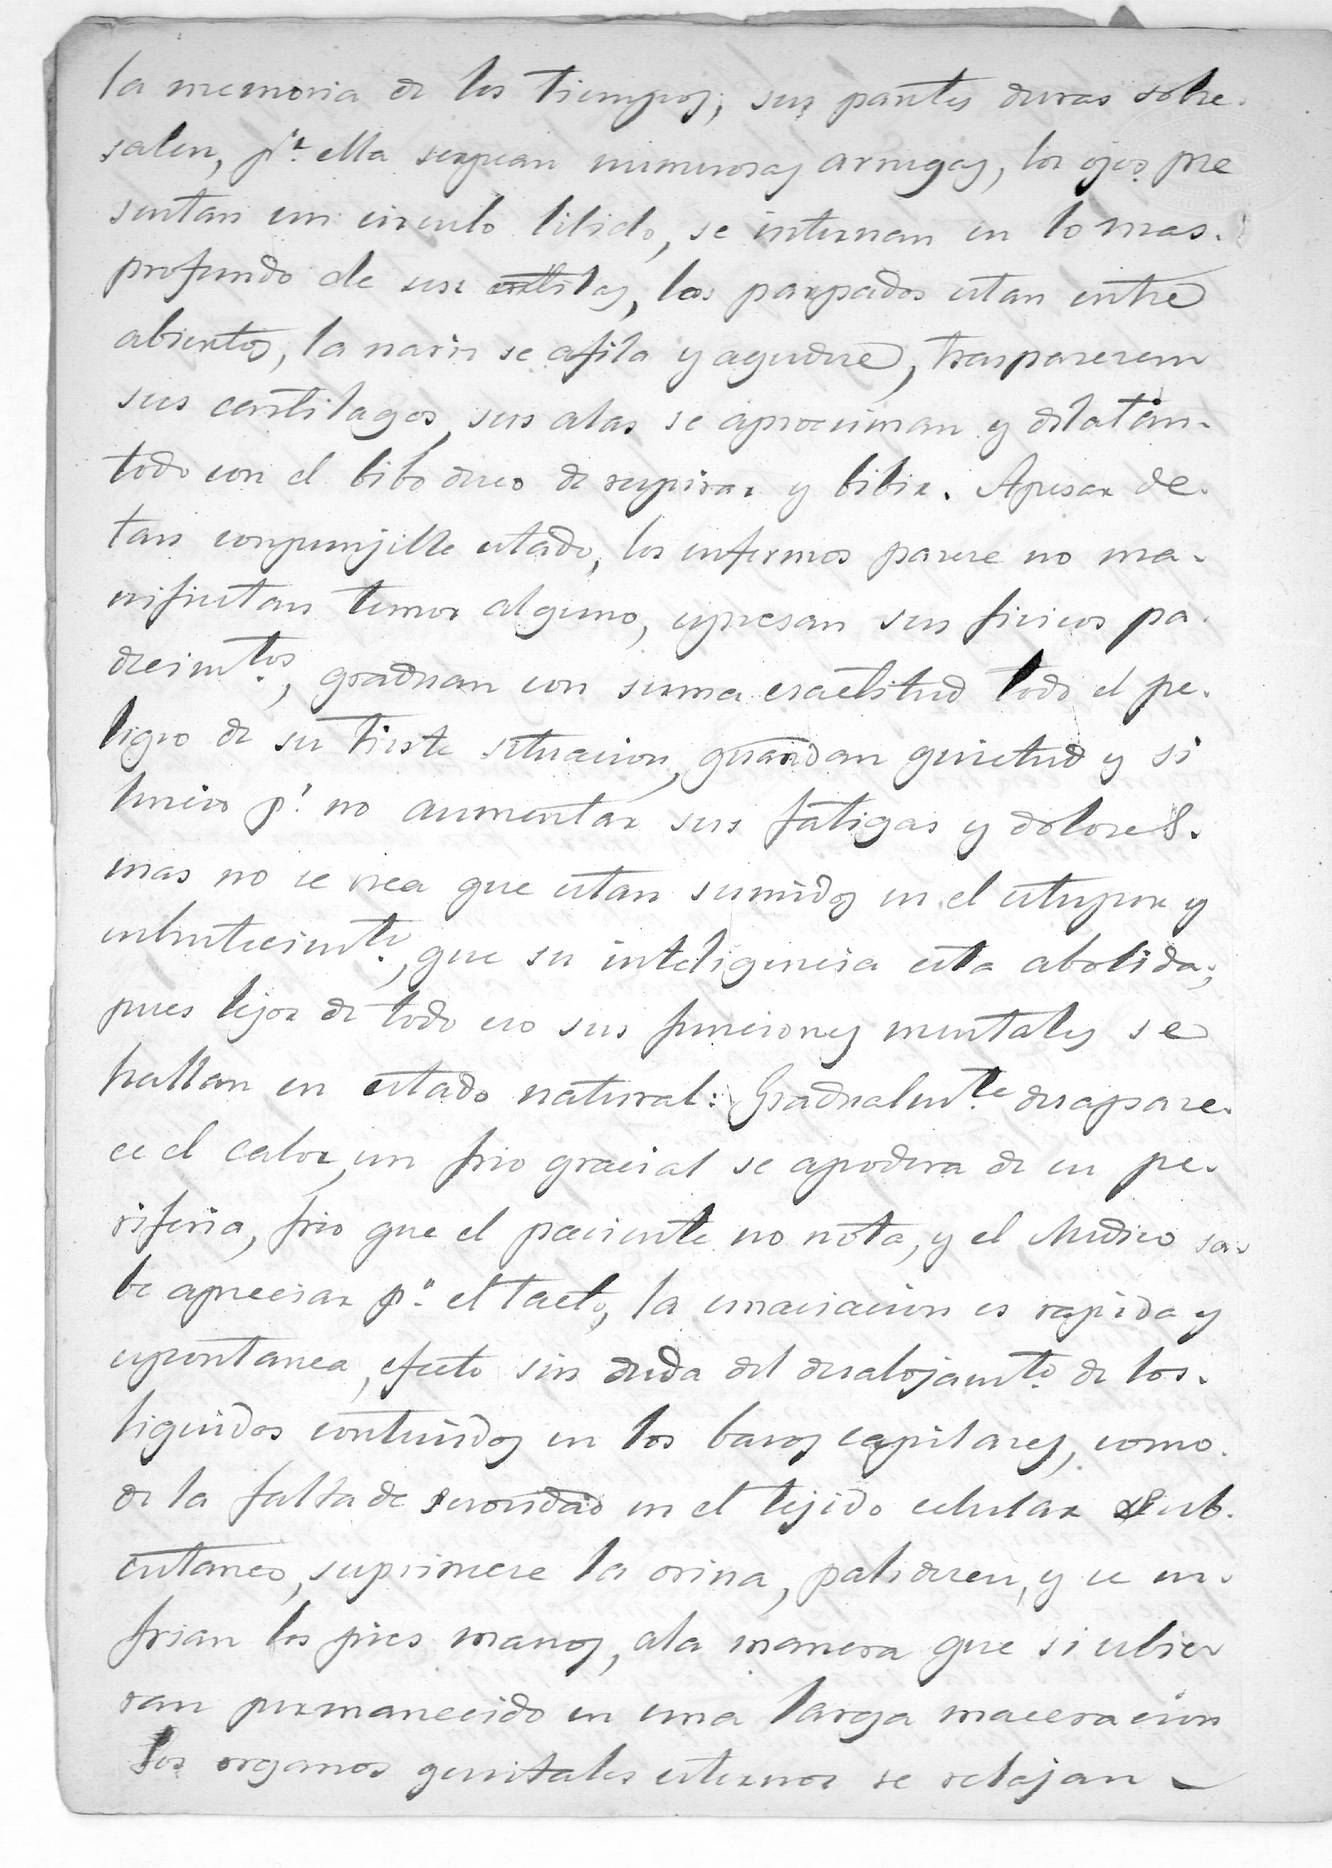 la memoria de los tiempos; sus partes duras sobre.
salen, pr. ella serpean numerosas arrugas, los ojos pre
sentan un circulo libido, se internan en lo mas.
profundo de sus los parpados estan entre
abiertos, la nariz se afila y agudece, trasparecem
sus cartilagos, sus alas se aprocsiman y dilatan.
todo con el bibo deceo de respirar y bibir. Apesar de.
tan conpunjible estado, los enfermos parece no ma.
nifiestan temor alguno, espresan sus ficicos pa.
decimtos., graduan con suma esactitud todo el pe.
ligro de su triste situacion, guardan quietud y si
lencio pa. no aumentar sus fatigas y dolores.
mas no se crea que estan sumidos en el estupor y
enbrutecimto., que su inteligencia esta abolida;
pues lejos de todo eso sus funciones mentales se
hallan en estado natural: Gradualmte. desapare.
ce el calor, un frio gracial se apodera de su pe.
riferia, frio que el paciente no nota, y el Medico sa.
be apreciar pr. el tacto, la emaciacion es rapida y
espontanea, efecto sin duda del desalojamto. de los.
liquidos contenidos en los basos capilares, como.
de la falta de serocidad en el tejido celular sub.
cutaneo, suprimese la orina, palidecen, y se en.
frian los pies manos, ala manera que si ubie
ran permanecido en una larga maceracion
los organos genitales esternos se relajan